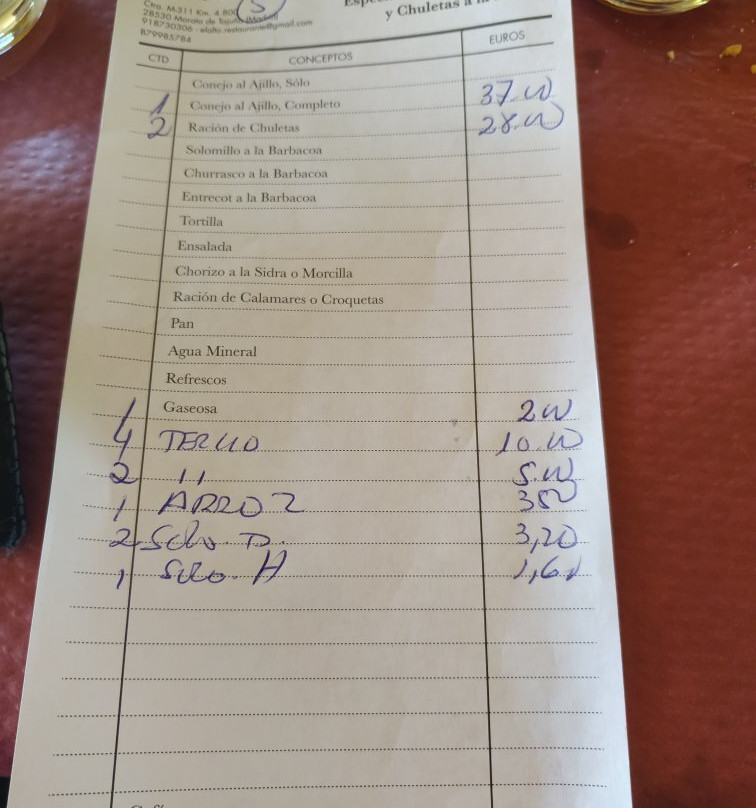 Ctra. M-311 Km. 4.800 5
28530 Morata de Tajuña (Madrid)
918730306 - elalto.restaurante@gmail.com
B79985784
y Chuletas a la
CTD CONCEPTOS EUROS
Conejo al Ajillo, Sólo
1 Conejo al Ajillo, Completo 37.00
2 Ración de Chuletas 28.00
Solomillo a la Barbacoa
Churrasco a la Barbacoa
Entrecot a la Barbacoa
Tortilla
Ensalada
Chorizo a la Sidra o Morcilla
Ración de Calamares o Croquetas
Pan
Agua Mineral
Refrescos
1 Gaseosa 2 00
4 TERCIO 10.00
2 11 5.00
1 ARROZ 3 50
2 Solo D. 3,20
1 Solo. H 1,60